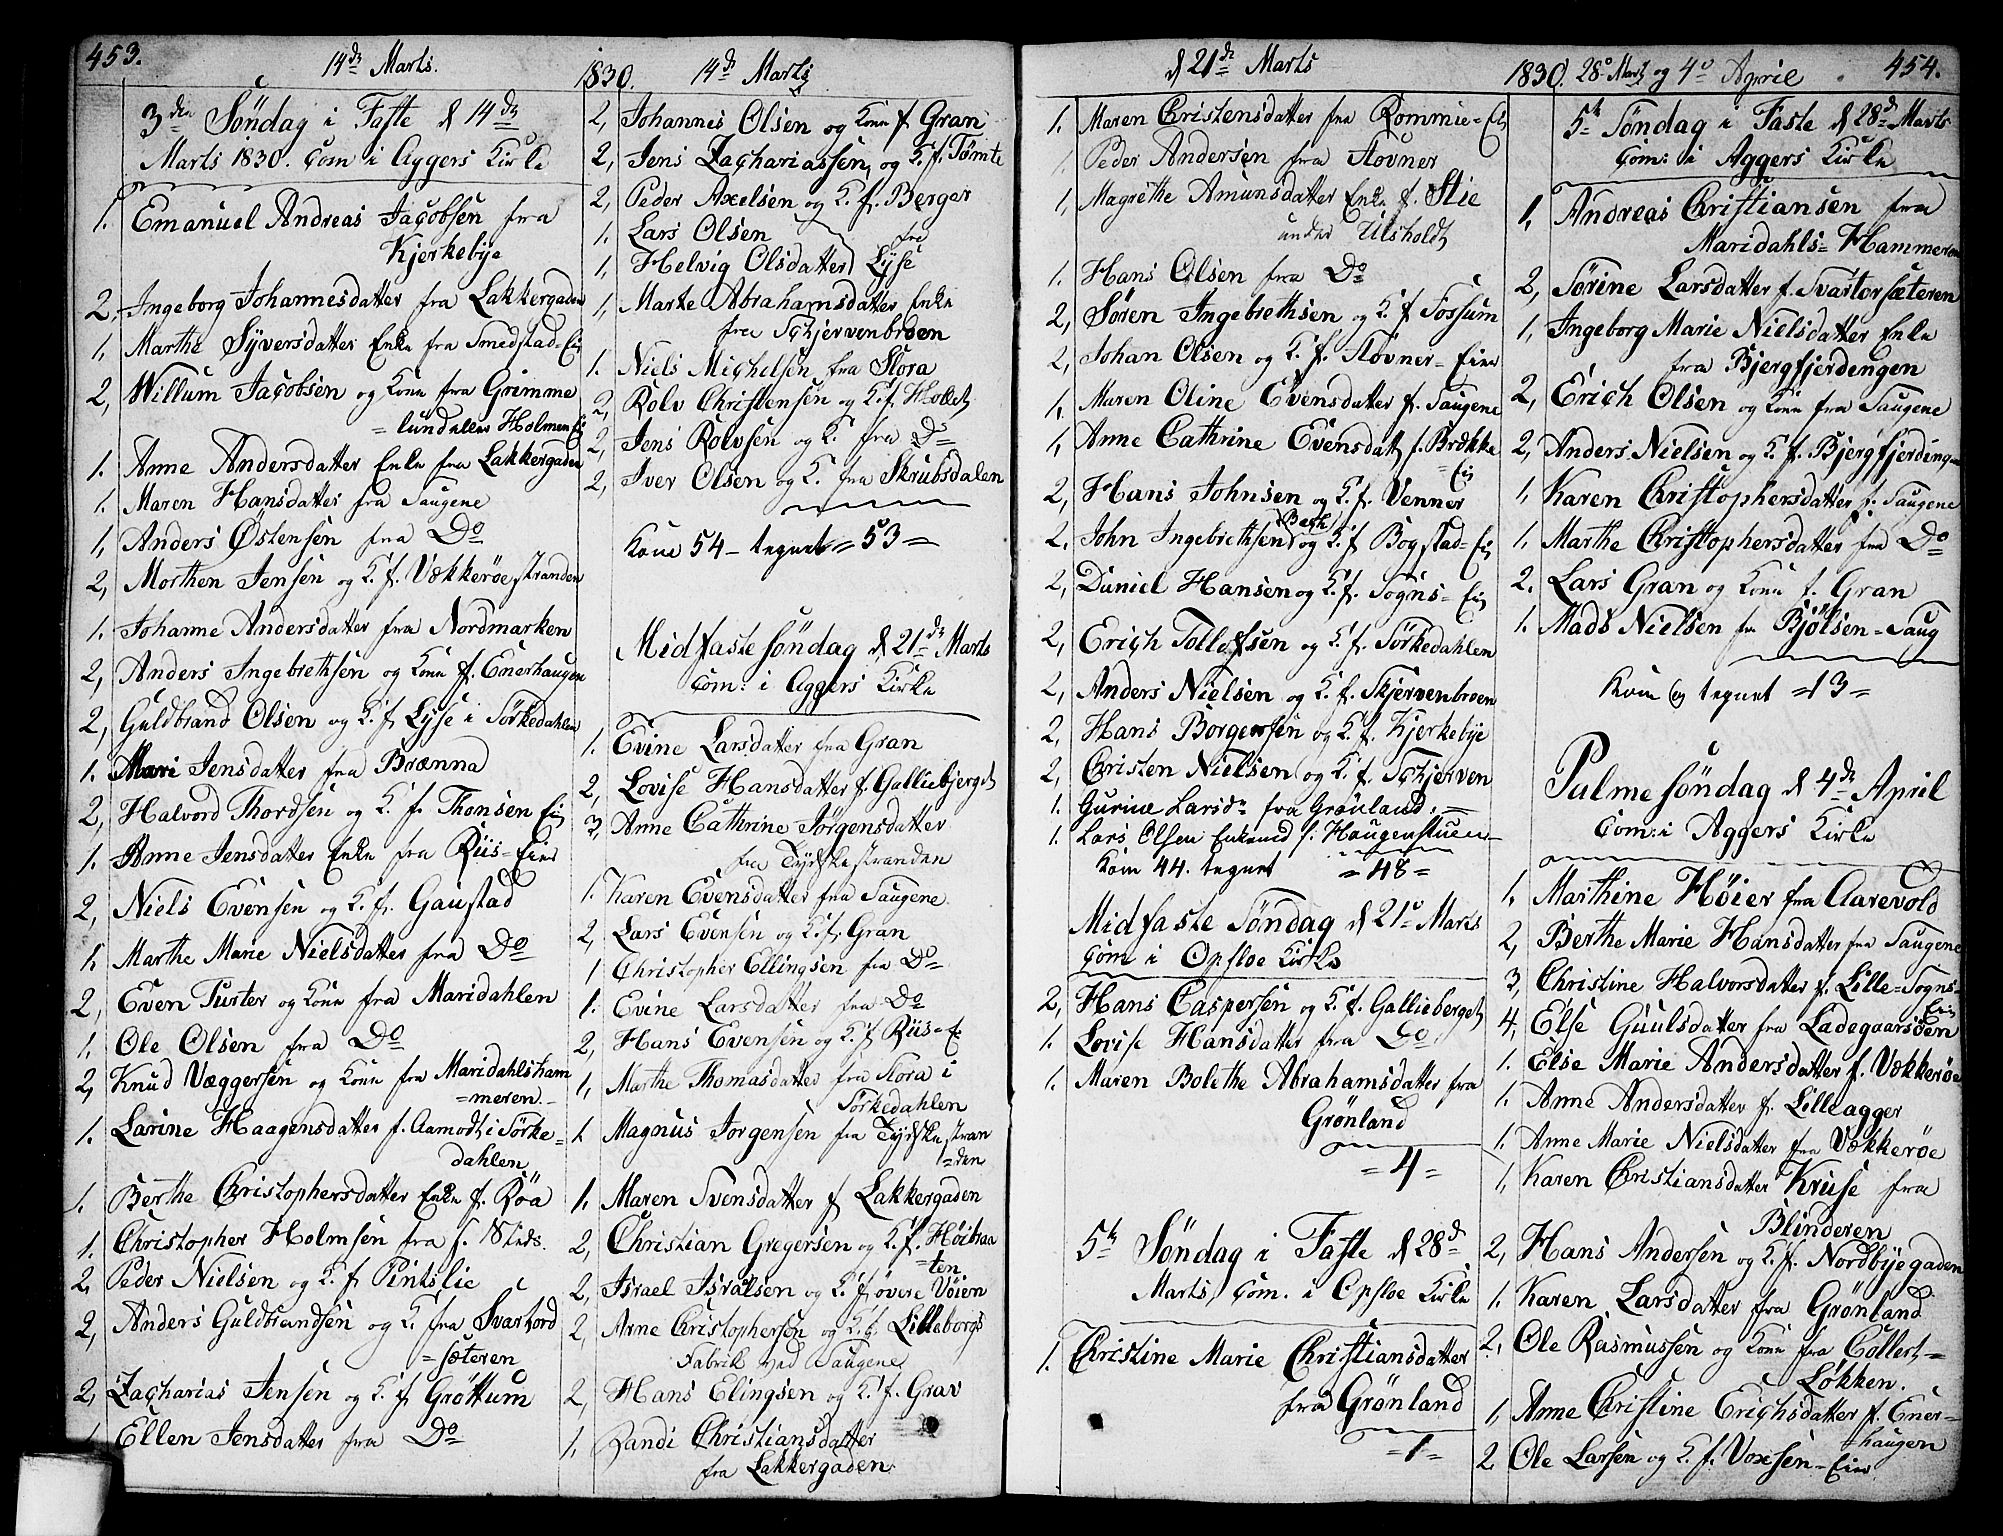 453.
14de Marts.
1830.
14de Marts
3die Søndag i Faste d 14de
Marts 1830. Com i Aggers Kirke
1. Emanuel Andreas Jacobsen fra
Kjerkebye
2, Ingeborg Johannesdatter fra Lakkergaden
1, Marthe Syversdatter Enke fra Smedstad-Ei
2, Willum Jacobsen og Kone fra Grimme
=lund eller Holmen Ei
1. Anne Andersdatter Enke fra Lakkergaden
1. Maren Hansdatter fra Saugene
1, Anders Østensen fra Do
2, Morthen Jensen og K. f. Vækkerøestranden
1. Johanne Andersdatter fra Nordmarken
2, Anders Ingebrethsen og Kone f. Enerhaugen
2, Guldbrand Olsen og K. f Lyse i Sørkedahlen
1. Mari Jensdatter fra Brænna
2, Halvord Thordsen og K. f. Thonsen Ei
1. Anne Jensdatter Enke fra Riis-Eier
2, Niels Evensen og K. f. Gaustad
1, Marthe Marie Nielsdatter fra Do
2, Even Turter og Kone fra Maridahlen
1. Ole Olsen fra Do
2, Knud Væggersen og Kone fra Maridahlsham
=meren.
1. Larine Haagensdatter f. Aamodt i Sørke=
dahlen
1. Berthe Christophersdatter Enke f. Røa
1. Christopher Holmsen fra f. Stids.
2, Peder Nielsen og K. f Pintslie
2, Anders Guldbrandsen og K. fra Svartord
=sæteren
2, Zacharias Jensen og K. f Grøttum
1, Ellen Jensdatter fra Do
2, Johannes Olsen og Kone f Gran
2, Jens Zachariassen og K. f. Tømte
2, Peder Axelsen og K. f. Berger
1. Lars Olsen
1, Helvig Olsdatter fra Lyse
1, Marte Abrahamsdatter Enke
fra Schjervenbroen
1. Niels Michelsen fra Flora
2, Rolv Christensen og K. f. Hollet
2, Jens Rolvsen og K. fra Do
2, Iver Olsen og K. fra Skrubsdalen
Kom 54 - tegnet = 53 =
Midfastesøndag d 21de Marts
Com: i Aggers Kirke
1. Evine Larsdatter fra Gran
2, Lovise Hansdatter f. Galliebjerget
3, Anne Cathrine Jørgensdatter
fra Tydskestranden
1. Karen Evensdatter fra Saugene
2, Lars Evensen og K. f. Gran
1 Christopher Ellingsen fra Do
1. Evine Larsdatter fra Do
2, Hans Evensen og K. f Riis-E
1, Marthe Thomasdatter fra Flora i
Sørkedahlen
1. Magnus Jorgensen fra Tydskestran
=den
1. Maren Svensdatter f Lakkergaden
2, Christian Gregersen og K. f. Høibraa
=ten
2, Israel Isralsen og K. f øvre Vøien
2, Arne Christophersen og K. f. Lilleborgs
Fabrik ved Saugene
2, Hans Elingsen og K. f. Grav
1, Randi Christiansdatter
fra Lakkergaden
d 21de Marts
1830. 28o Marts og 4o April
454.
1. Maren Christensdatter fra Rommie-Ei
1. Peder Andersen fra Stovner
1, Magrethe Amunsdatter Enke f. Slie
under Ulsholdt
1. Hans Olsen fra Do
2, Søren Ingebrethsen og K. f Fossum
2, Johan Olsen og K. f. Stovner-Eier
1, Maren Oline Evensdatter f. Saugene
1, Anne Cathrine Evensdat f. Brække
=Ei
2, Hans Johnsen og K. f. Venner
2. John Ingebrethsen Bech og K. f Bogstad-Ei
2, Daniel Hansen og K. f. Sogns-Ei
2, Erich Tollofsen og K. f. Sørkedahlen
2, Anders Nielsen og K. f. Skjervenbroen
2, Hans Borgersen og K. f. Kjerkebye
2, Christen Nielsen og K. f. Schjerven
1. Gurine Larsdr fra Grønland.
1. Lars Olsen Enkemd f. Haugenstuen
Kom 44. tegnet = 48 =
Midfaste Søndag d 21o Marts
Com i Opsloe Kirke
2, Hans Caspersen og K. f. Gallieberget
1. Lovise Hansdatter fra Do
1. Maren Bolethe Abrahamsdatter fra
Grønland
= 4 =
5te Søndag i Faste d 28de
Marts, Com. i Opsloe Kirke
1. Christine Marie Christiansdatter
fra Grønland
= 1 =
5te Søndag i Faste d 28de Marts
Com: i Aggers Kirke
1, Andreas Christiansen fra
Maridahls=Hammeren
2, Sørine Larsdatter f. Svartorsæteren
1, Ingeborg Marie Nielsdatter Enke
fra Bjergfjerdengen
2, Erich Olsen og Kone fra Saugene
2, Anders Nielsen og K. f. Bjergfjerdingen
1, Karen Christophersdatter f. Saugene
1. Marthe Christophersdatter fra Do
2. Lars Gran og Kone f. Gran
1. Mads Nielsen fr Bjølsen=Saug
Kom og tegnet = 13 =
Palmesøndag d 4de April
Com: i Aggers Kirke
1, Marthine Høier fra Aarevold
2, Berthe Marie Hansdatter fra Saugene
3, Christine Halvorsdatter f. Lille=Sogns=
Ei
4, Else Guulsdatter fra Ladegaarsøen
1. Else Marie Andersdatter f. Vækkerøe
1. Anne Andersdatter f. Lilleagger
1. Anne Marie Nielsdatter fra Vækkerøe
1, Karen Christiansdatter Kruse fra
Blinderen
2, Hans Andersen og K. f. Nordbyegaden
1. Karen Larsdatter fra Grønland
2. Ole Rasmussen og Kone fra Collett=
Løkken.
1, Anne Christine Erichsdatter f. Ener=
haugen
2. Ole Larsen og K. f. Voxsen=Eier